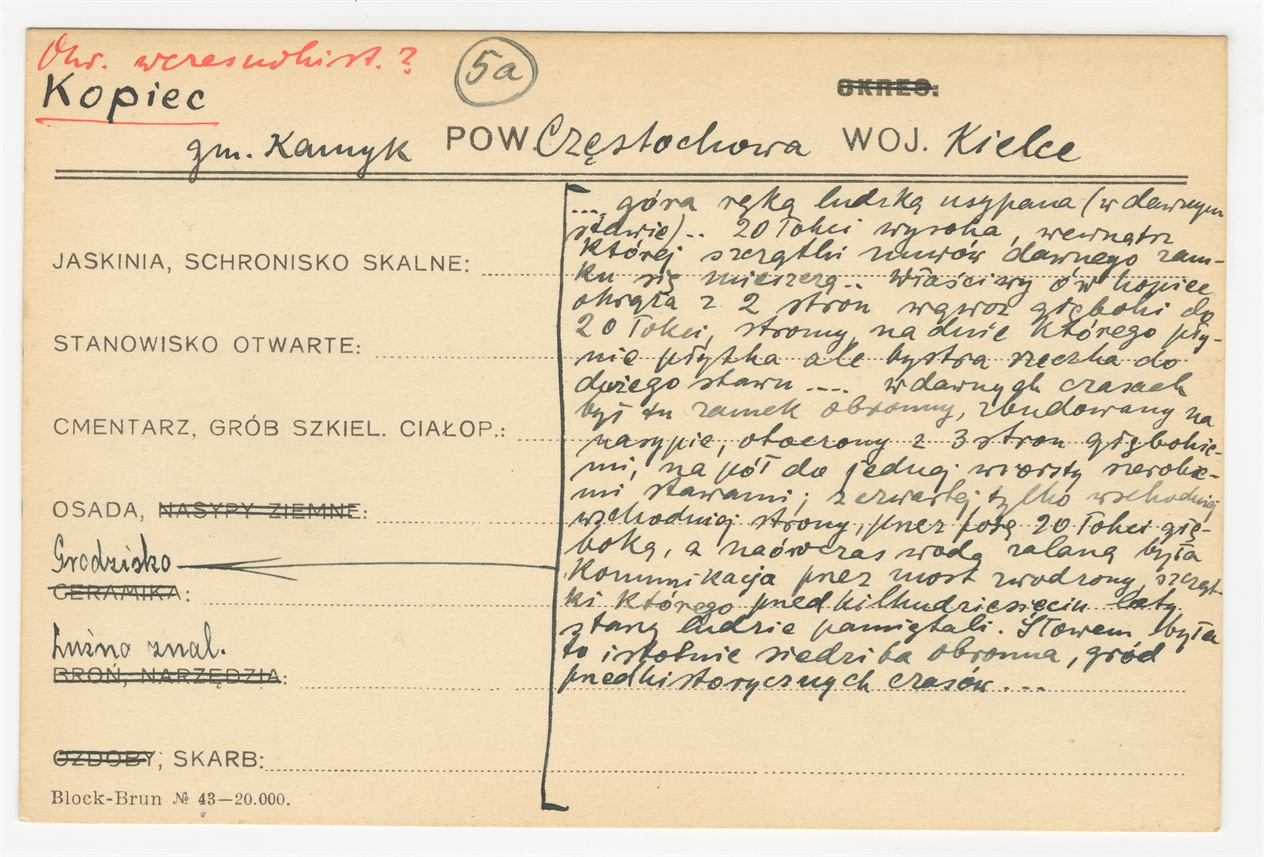 Okr. wczesnohist.?
5a
Kopiec
OKRES:
gm. Kamyk POW. Częstochowa WOJ. Kielce
... góra ręką ludzką usypana (w dawnym
stawie).. 20 łokci wysoka, wewnątrz
której szczątki murów dawnego zam-
ku się mieszczą.. właściwy ów kopiec
okrąża z 2 stron wąwóz głęboki do
20 łokci, stromy, na dnie którego pły-
nie płytka ale bystra rzeczka do
dużego stawu .... w dawnych czasach
był tu zamek obronny, zbudowany na
nasypie, otoczony z 3 stron głębokie-
mi, na pół do jednej wiorsty szeroke-
mi stawami; z czwartej tylko wschodniej
wschodniej strony, przez fosę 20 łokci głę-
boką, a naówczas wodą zalaną była
komunikacja przez most zwodzony, szcząt-
ki którego przed kilkudziesięciu laty
starzy ludzie pamiętali. Słowem, była
to istotnie siedziba obronna, gród
przedhistorycznych czasów....
JASKINIA, SCHRONISKO SKALNE:
STANOWISKO OTWARTE:
CMENTARZ, GRÓB SZKIEL. CIAŁOP.:
OSADA, NASYPY ZIEMNE:
Grodzisko
CERAMIKA:
Luźno znal.
BROŃ, NARZĘDZIA:
OZDOBY, SKARB:
Block-Brun № 43—20.000.